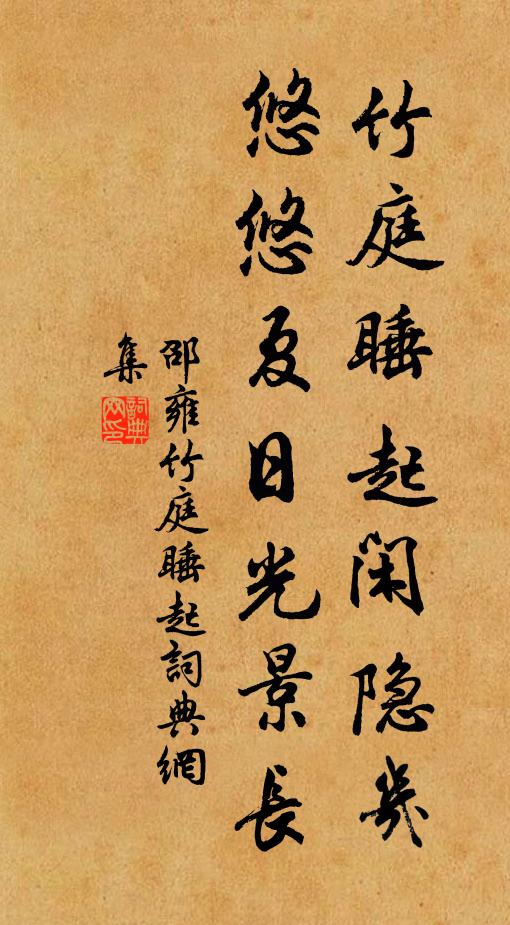 竹庭睡起闲隐几
悠悠夏日光景長
邵雍竹庭睡起詞典網
集
詞典网印